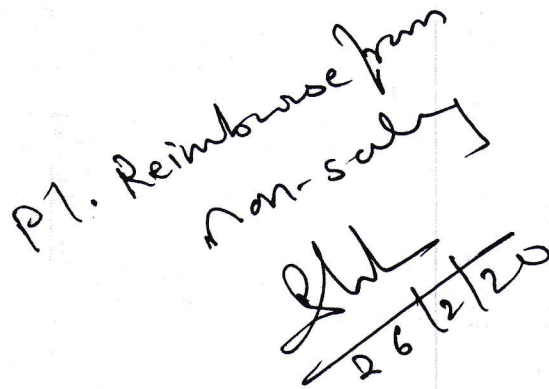 Pl. Reimburse from
non-salary
26/2/20